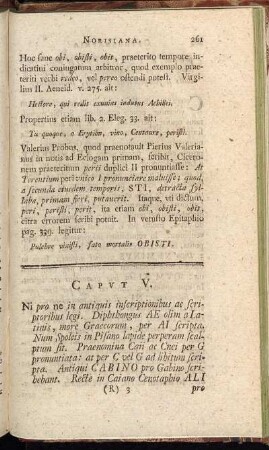 NORISIANA. 261
Hoc sane obi, obisti, obit, praeterito tempore in-
dicatiui coniugatum arbitror, quod exemplo prae-
teriti verbi redeo, vel pereo ostendi potest. Virgi-
lius II. Aeneid. v. 275. ait:
Hectore, qui redit exuuias indutus Achillis.
Propertius etiam lib. 2. Eleg. 33. ait:
Tu quoque, o Eurytion, vino, Centaure, peristi.
Valerius Probus, quod praenotauit Pierius Valeria-
nus in notis ad Eclogam primam, scribit, Cicero-
nem praeteritum perii duplici II pronuntiasse: At
Terentium peri vnico I pronunciare maluisse: quod,
a secunda eiusdem temporis, STI, detracta syl-
laba, primum fieri, putauerit. Itaque, vti dictum,
peri, peristi, perit, ita etiam obi, obisti, obit,
citra errorem scribi potuit. In versuto Epitaphio
pag. 329. legitur:
Pulchre vixisti, fato mortalis OBISTI.
CAPVT V.
Ni pro ne in antiquis inscriptionibus ac scri-
ptoribus legi. Diphthongus AE olim a La-
tinis, more Graecorum, per AI scripta.
Num Spoleis in Pisano lapide perperam scal-
ptum sit. Praenomina Caii ac Cnei per G
pronuntiata: at per C vel G ad libitum scri-
pta. Antiqui CABINO pro Gabino scri-
bebant. Recte in Caiano Cenotaphio ALI
(R) 3 pro